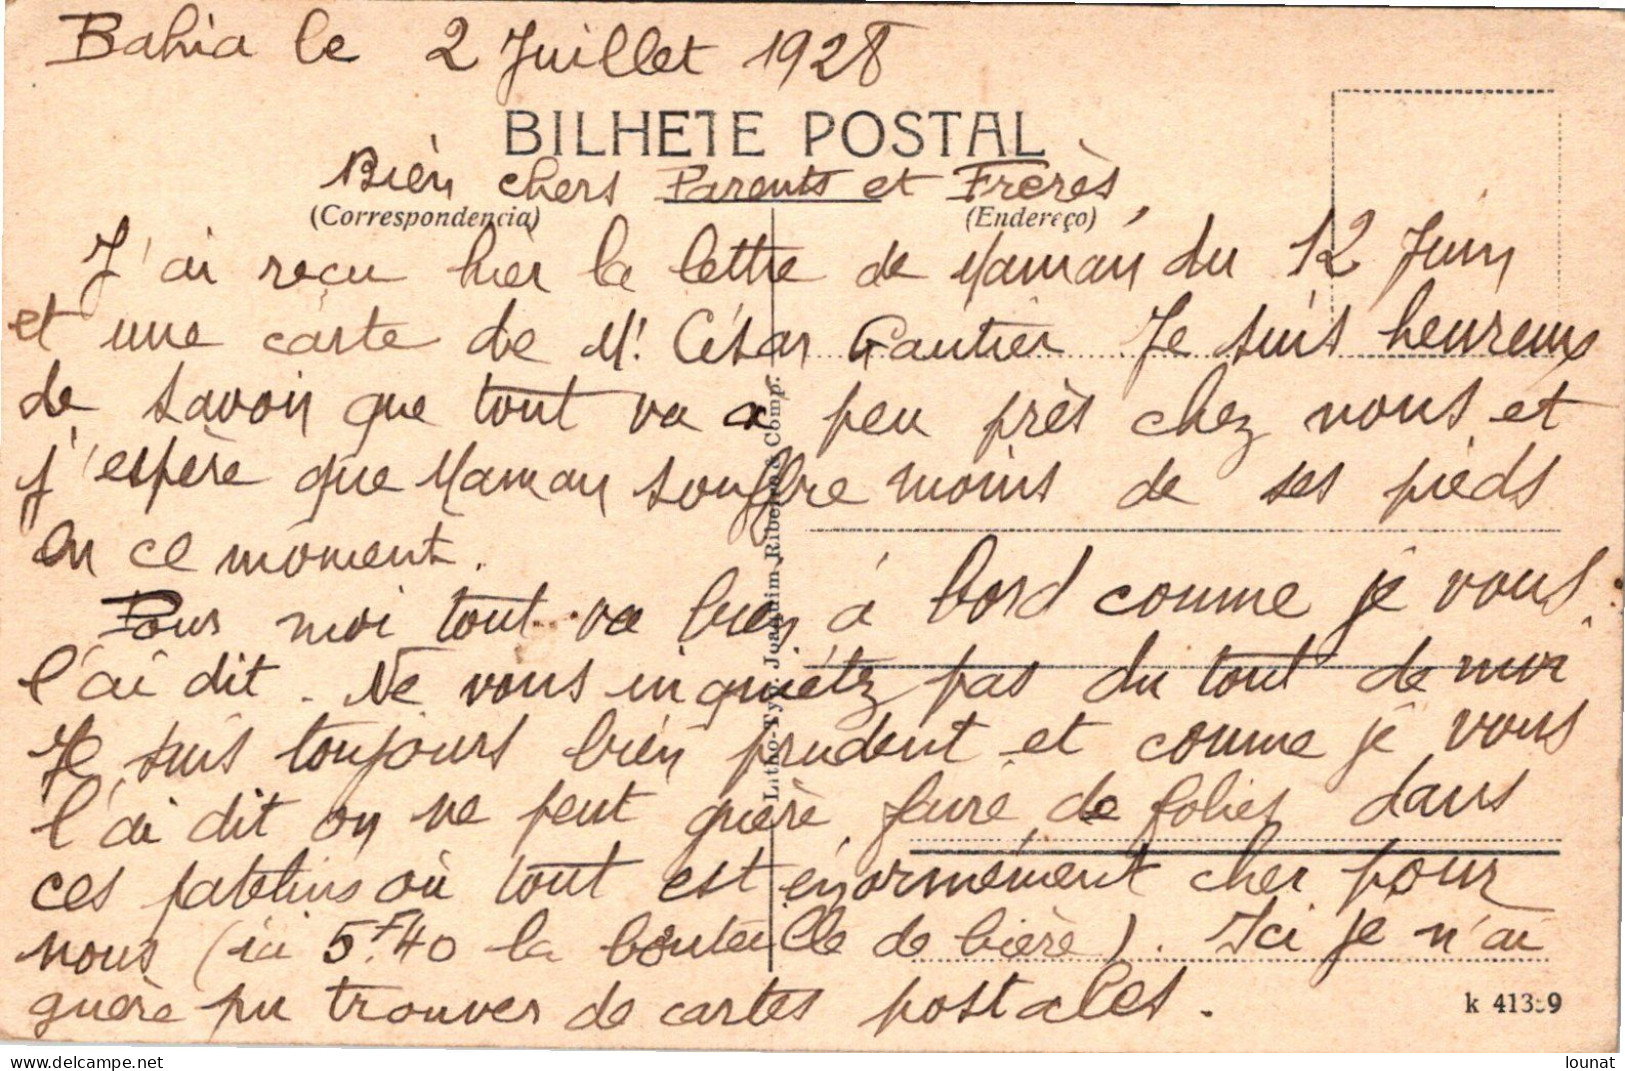 Bahia le 2 Juillet 1928
BILHETE POSTAL
Bien chers Parents et Frères,
(Correspondencia)
(Endereço)
J'ai reçu hier la lettre de Maman du 12 Juin
et une carte de Mr César Gautier Je suis heureux
de savoir que tout va a peu près chez nous et
j'espère que Maman souffre moins de ses pieds
en ce moment.
Pour moi tout va bien à bord comme je vous
l'ai dit. Ne vous inquiétez pas du tout de moi
Je suis toujours bien prudent et comme je vous
l'ai dit on ne peut guère faire de folies dans
ces patelins où tout est énormément cher pour
nous (ici 5F.40 la bouteille de bière). Ici je n'ai
guère pu trouver de cartes postales.
Litho-Typ. Joaquim Ribeiro & Comp.
lounat
https://www.delcampe.net